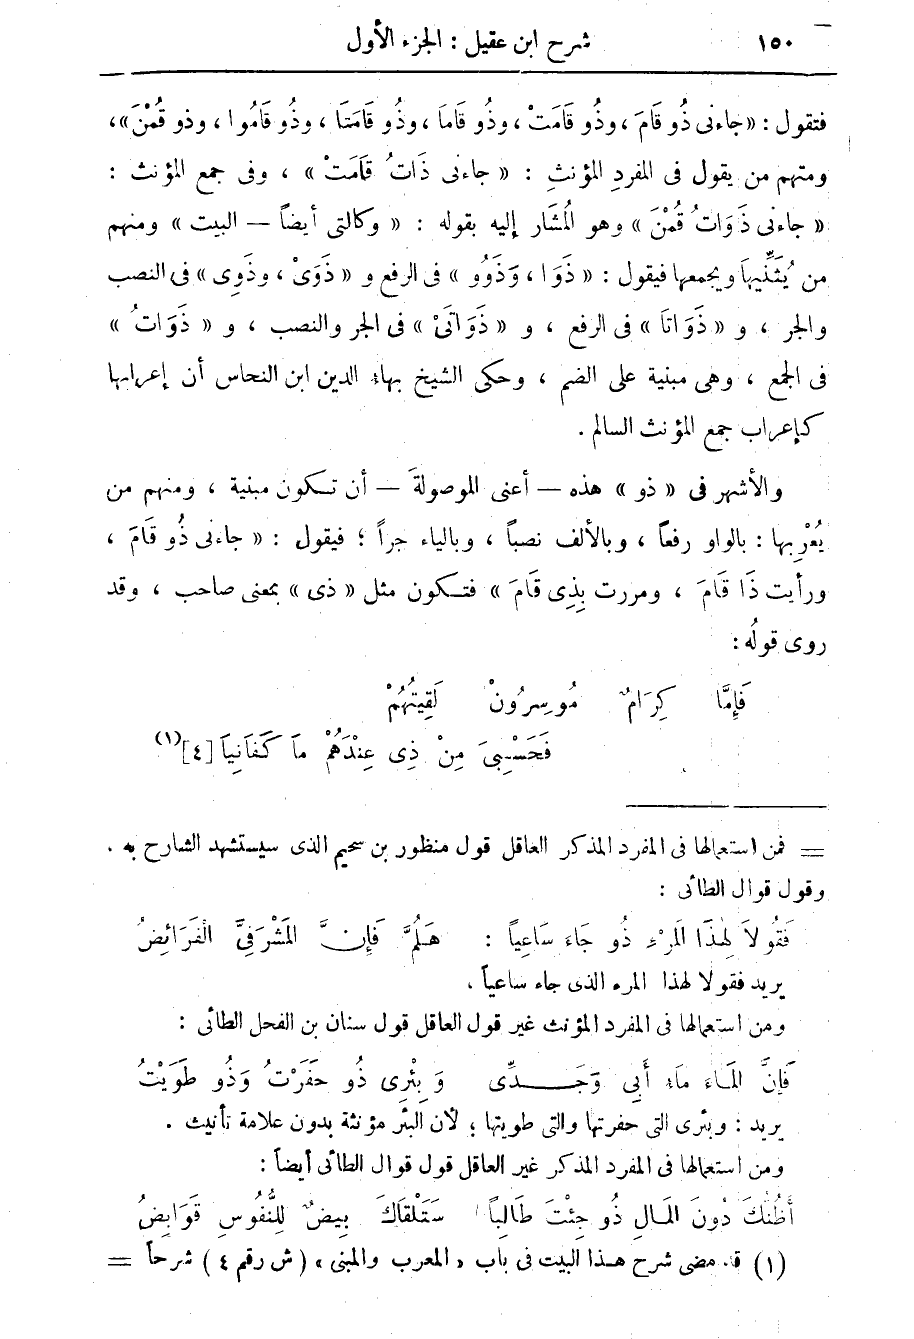 ١٥٠ شرح ابن عقيل : الجزء الأول
فتقول : « جاءنى ذُو قَامَ ، وذُو قَامَتْ ، وذُو قَامَا ، وذُو قَامَتَا ، وذُو قَامُوا ، وذو قُمْنَ » ،
ومنهم من يقول فى المفردِ المؤنثِ : « جاءنى ذَاتُ قَامَتْ » ، وفى جمع المؤنث :
« جاءنى ذَوَاتُ قُمْنَ » وهو المُشَار إليه بقوله : « وكالتى أيضاً — البيت » ومنهم
من يُثَنِّيهَا ويجمعها فيقول : « ذَوَا ، وَذَوُو » فى الرفع و « ذَوَىْ ، وذَوِى » فى النصب
والجر ، و « ذَوَاتَا » فى الرفع ، و « ذَوَاتَىْ » فى الجر والنصب ، و « ذَوَاتُ »
فى الجمع ، وهى مبنية على الضم ، وحكى الشيخ بهاء الدين ابن النحاس أن إعرابها
كإعراب جمع المؤنث السالم .
والأشهر فى « ذو » هذه — أعنى الموصولةَ — أن تكون مبنية ، ومنهم من
يُعْرِبها : بالواو رفعاً ، وبالألف نصباً ، وبالياء جراً ؛ فيقول : « جاءنى ذُو قَامَ ،
ورأيت ذَا قَامَ ، ومررت بِذِى قَامَ » فتكون مثل « ذى » بمعنى صاحب ، وقد
روى قولُه :
فَإِمَّا كِرَامٌ مُوسِرُونَ لَقِيتُهُمْ
فَحَسْبِىَ مِنْ ذِى عِنْدَهُمْ مَا كَفَانِيَا [٤] (١)
= فمن استعمالها فى المفرد المذكر العاقل قول منظور بن سحيم الذى سيستشهد الشارح به .
وقول قوال الطائى :
فَقُولَا لِهٰذَا المَرْءِ ذُو جَاءَ سَاعِياً : هَلُمَّ فَإِنَّ المَشْرَفِىَّ الفَرَائِضُ
يريد فقولا لهذا المرء الذى جاء ساعياً ،
ومن استعمالها فى المفرد المؤنث غير قول العاقل قول سنان بن الفحل الطائى :
فَإِنَّ المَاءَ مَاءُ أَبِى وَجَدِّى وَبِئْرِى ذُو حَفَرْتُ وَذُو طَوَيْتُ
يريد : وبئرى التى حفرتها والتى طويتها ؛ لأن البئر مؤنثة بدون علامة تأنيث .
ومن استعمالها فى المفرد المذكر غير العاقل قول قوال الطائى أيضاً :
أَظُنُّكَ دُونَ المَالِ ذُو جِئْتَ طَالِباً سَتَلْقَاكَ بِيضٌ لِلنُّفُوسِ قَوَابِضُ
(١) قد مضى شرح هذا البيت فى باب « المعرب والمبنى » ( ش رقم ٤ ) شرحاً =